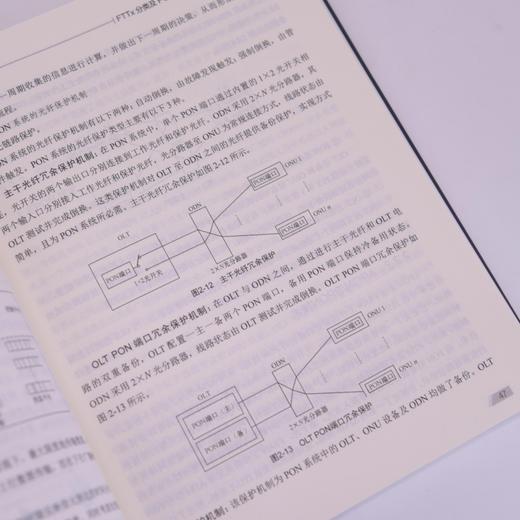 FTTx 分类及
一周期收集的信息进行计算，并做出下一周期的决策，从而形
流程。
PON 系统的光纤保护机制
链路保护。
系统的光纤保护机制有以下两种：自动倒换，由故障发现触发；强制倒换，由管
件触发。PON 系统的光纤保护类型主要有以下 3 种。
主干光纤冗余保护机制：在 PON 系统中，单个 PON 端口通过内置的 1×2 光开关相
连，光开关的两个输出口分别连接到工作光纤和保护光纤。ODN 采用 2×N 光分路器，其
两个输入口分别接入工作光纤和保护光纤，光分路器至 ONU 为常规连接方式，线路状态由
OLT 测试并完成倒换。这类保护机制对 OLT 至 ODN 之间的光纤提供备份保护，实现方式
简单，且为 PON 系统所必需。主干光纤冗余保护如图 2-12 所示。
OLT
ODN
ONU 1
PON端口
PON端口
1×2光开关
2×N光分路器
PON端口
ONU n
图2-12 主干光纤冗余保护
OLT PON 端口冗余保护机制：在 OLT 与 ODN 之间，通过进行主干光纤和 OLT 电
路的双重备份，OLT 配置一主一备两个 PON 端口，备用 PON 端口保持冷备用状态。
ODN 采用 2×N 光分路器，线路状态由 OLT 测试并完成倒换。OLT PON 端口冗余保护如
图 2-13 所示。
OLT
ODN
ONU 1
PON端口
PON端口（主）
PON端口（备）
2×N光分路器
PON端口
ONU n
图2-13 OLT PON端口冗余保护
机制：该保护机制为 PON 系统中的 OLT、ONU 设备及 ODN 均做了备份。OLT
47